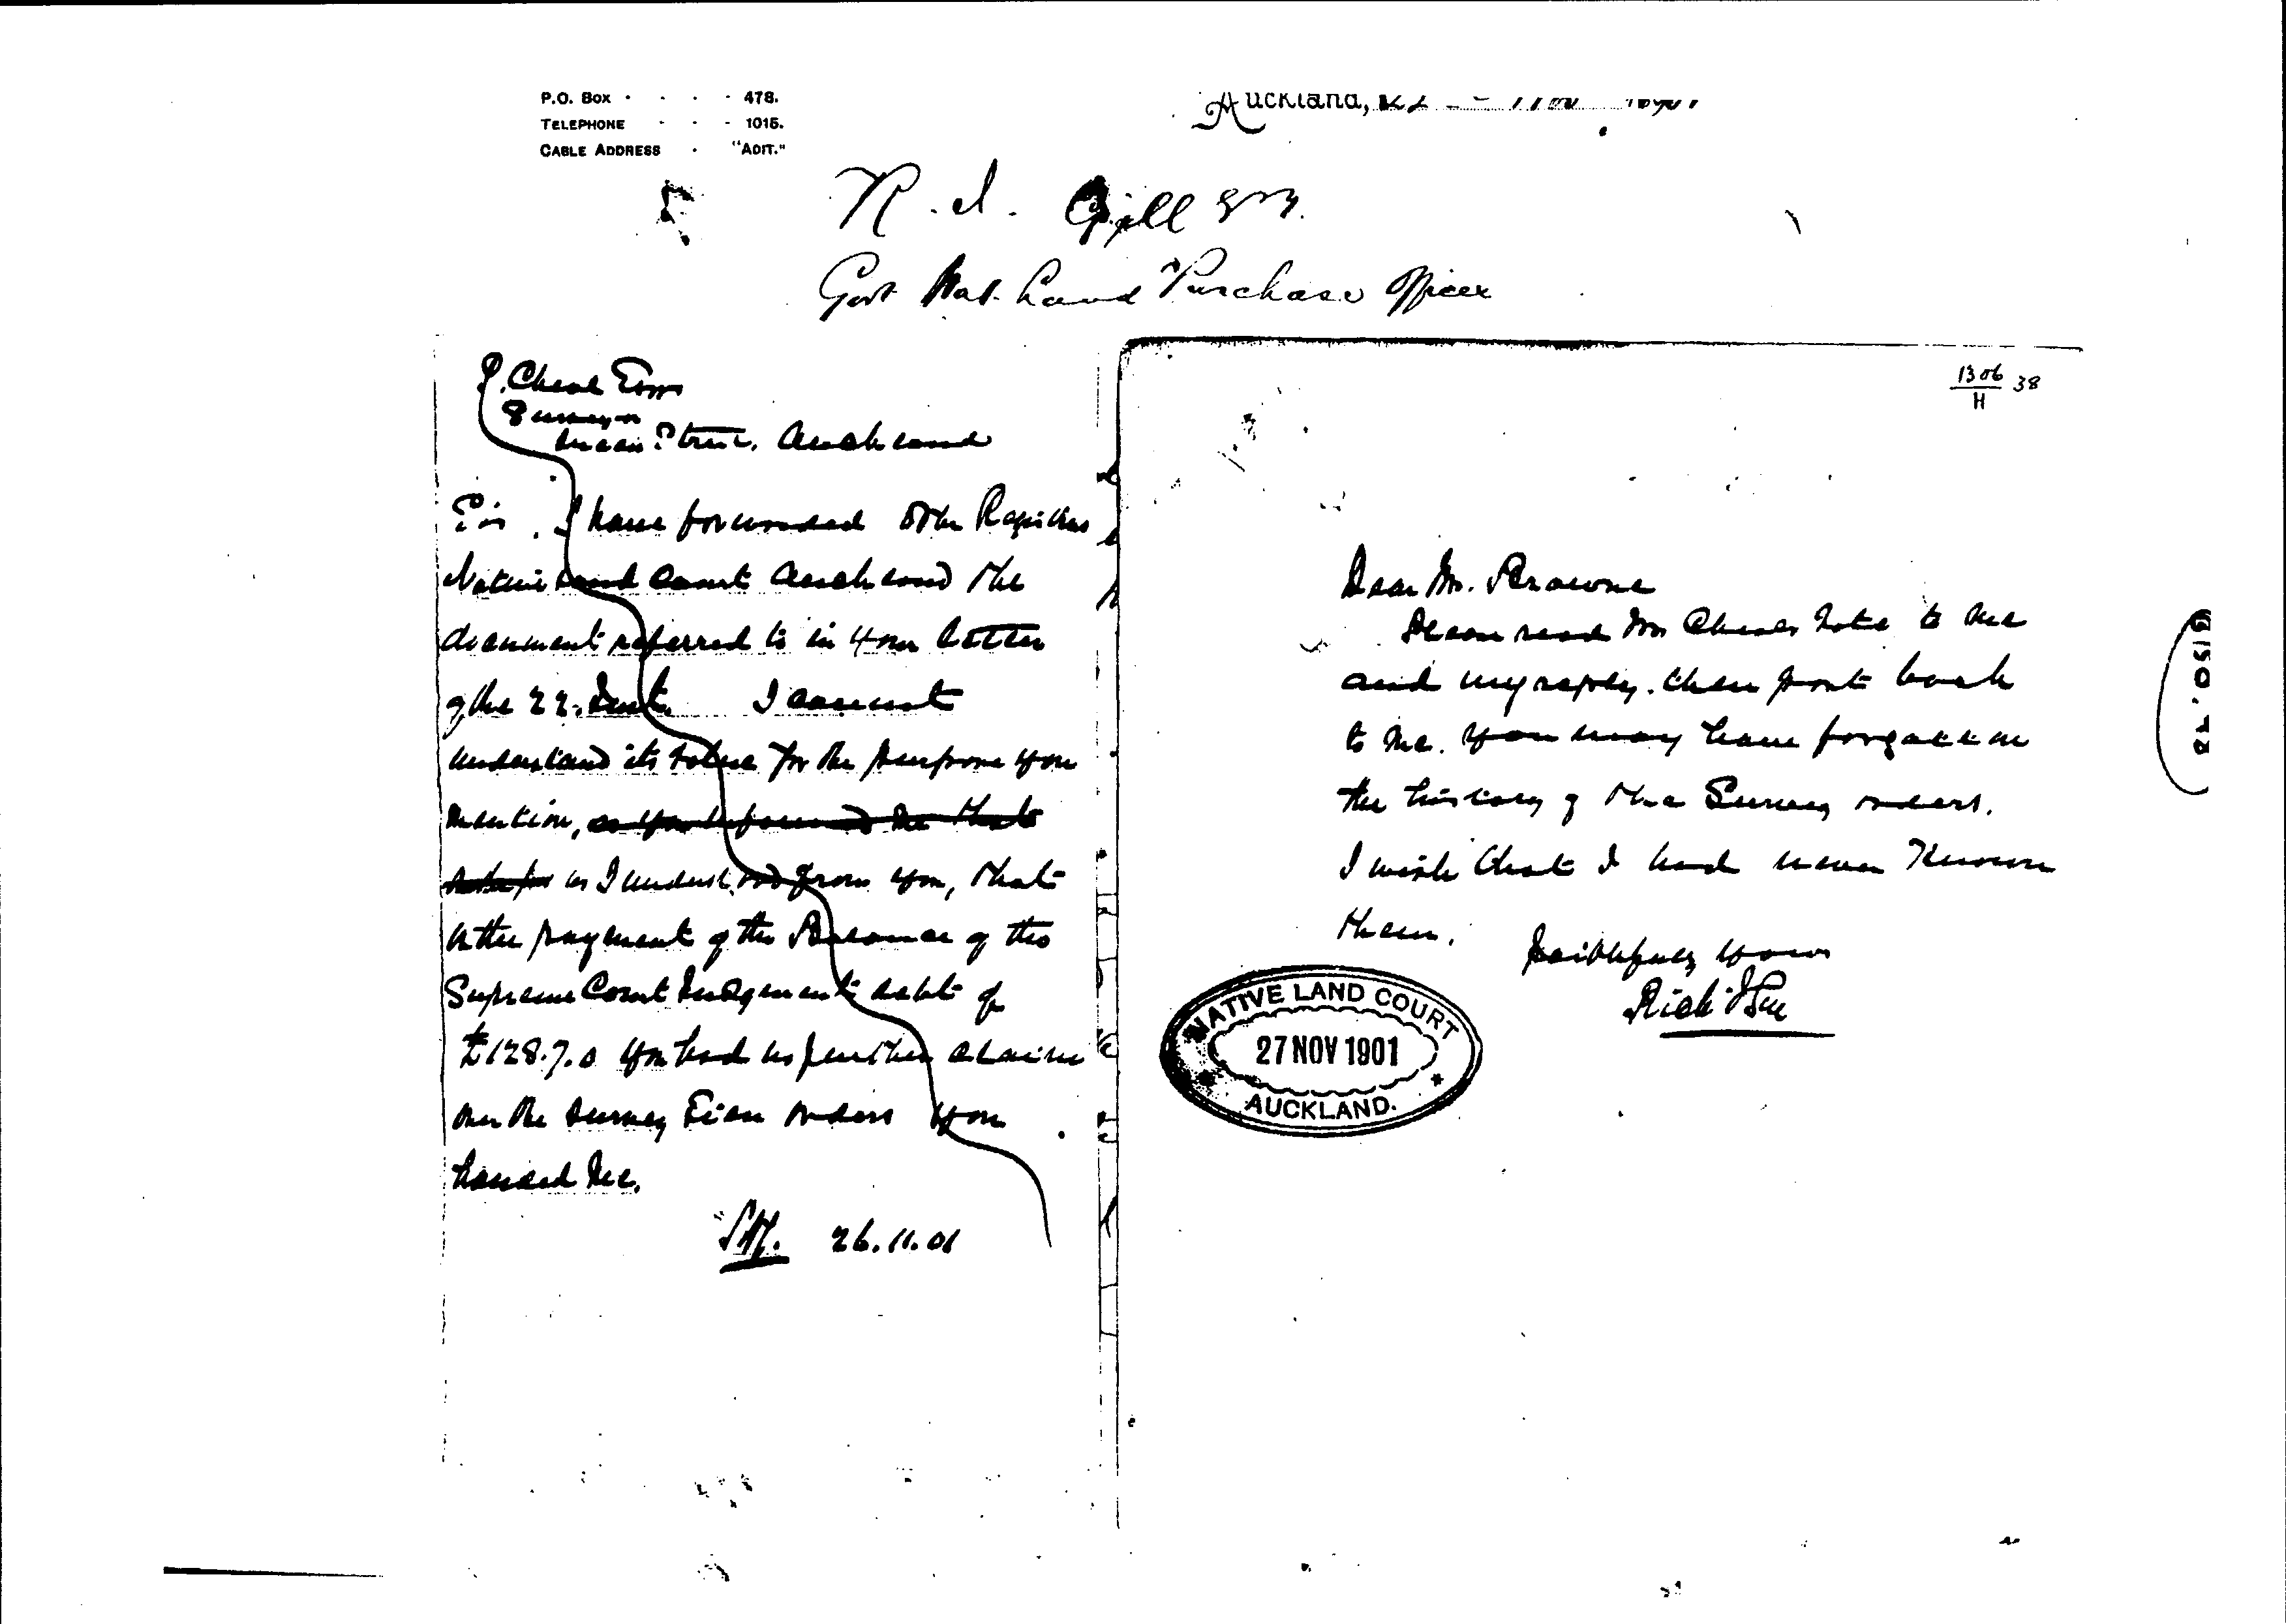 P.O. Box - - - - 478.
TELEPHONE - - - 1015.
CABLE ADDRESS - "ADIT."
Auckland, 22
R. J. Gill Esq.
Govt Nat. Land Purchase Officer
P. Cheal Esqr
Surveyor
Street. Auckland
Sir. I have forwarded to the Registrar
Native Land Court Auckland the
document referred to in your letter
of the 22. Inst. I cannot
understand its value for the purpose you
mention, as you informed me that
as I understood from you, that
after payment of the Balance of the
Supreme Court Judgement debt of
£128.7.0 you had no further claim
on the Survey Lien orders you
handed me.
26.11.01
1306
H
38
Dear Mr. Browne
Please read Mr Cheal's note to me
and my reply. then post back
to me. you may have forgotten
the history of the Survey orders.
I wish that I had never known
them.
Faithfully yours
Rich
NATIVE LAND COURT
27 NOV 1901
AUCKLAND.